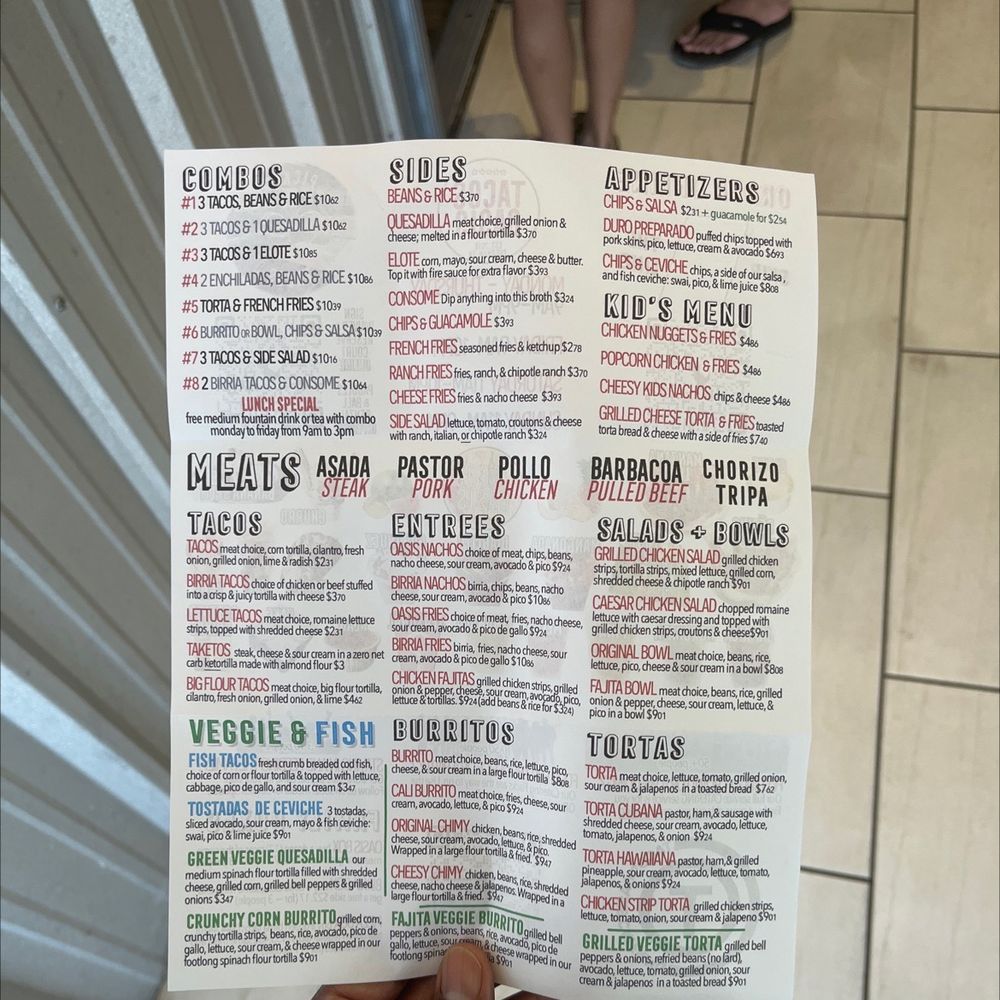 COMBOS
#1 3 TACOS, BEANS & RICE $1062
#2 3 TACOS & 1 QUESADILLA $1062
#3 3 TACOS & 1 ELOTE $1085
#4 2 ENCHILADAS, BEANS & RICE $1086
#5 TORTA & FRENCH FRIES $1039
#6 BURRITO OR BOWL, CHIPS & SALSA $1039
#7 3 TACOS & SIDE SALAD $1016
#8 2 BIRRIA TACOS & CONSOME $1064
LUNCH SPECIAL
free medium fountain drink or tea with combo
monday to friday from 9am to 3pm
SIDES
BEANS & RICE $370
QUESADILLA meat choice, grilled onion &
cheese; melted in a flour tortilla $370
ELOTE corn, mayo, sour cream, cheese & butter.
Top it with fire sauce for extra flavor $393
CONSOME Dip anything into this broth $324
CHIPS & GUACAMOLE $393
FRENCH FRIES seasoned fries & ketchup $278
RANCH FRIES fries, ranch, & chipotle ranch $370
CHEESE FRIES fries & nacho cheese $393
SIDE SALAD lettuce, tomato, croutons & cheese
with ranch, italian, or chipotle ranch $324
APPETIZERS
CHIPS & SALSA $231 + guacamole for $254
DURO PREPARADO puffed chips topped with
pork skins, pico, lettuce, cream & avocado $693
CHIPS & CEVICHE chips, a side of our salsa,
and fish ceviche: swai, pico, & lime juice $808
KID'S MENU
CHICKEN NUGGETS & FRIES $486
POPCORN CHICKEN & FRIES $486
CHEESY KIDS NACHOS chips & cheese $486
GRILLED CHEESE TORTA & FRIES toasted
torta bread & cheese with a side of fries $740
MEATS
ASADA
STEAK
PASTOR
PORK
POLLO
CHICKEN
BARBACOA
PULLED BEEF
CHORIZO
TRIPA
TACOS
TACOS meat choice, corn tortilla, cilantro, fresh
onion, grilled onion, lime & radish $231
BIRRIA TACOS choice of chicken or beef stuffed
into a crisp & juicy tortilla with cheese $370
LETTUCE TACOS meat choice, romaine lettuce
strips, topped with shredded cheese $231
TAKETOS steak, cheese & sour cream in a zero net
carb ketortilla made with almond flour $3
BIG FLOUR TACOS meat choice, big flour tortilla,
cilantro, fresh onion, grilled onion, & lime $462
ENTREES
OASIS NACHOS choice of meat, chips, beans,
nacho cheese, sour cream, avocado & pico $924
BIRRIA NACHOS birria, chips, beans, nacho
cheese, sour cream, avocado & pico $1086
OASIS FRIES choice of meat, fries, nacho cheese,
sour cream, avocado & pico de gallo $924
BIRRIA FRIES birria, fries, nacho cheese, sour
cream, avocado & pico de gallo $1086
CHICKEN FAJITAS grilled chicken strips, grilled
onion & pepper, cheese, sour cream, avocado, pico,
lettuce & tortillas. $924 (add beans & rice for $324)
SALADS + BOWLS
GRILLED CHICKEN SALAD grilled chicken
strips, tortilla strips, mixed lettuce, grilled corn,
shredded cheese & chipotle ranch $901
CAESAR CHICKEN SALAD chopped romaine
lettuce with caesar dressing and topped with
grilled chicken strips, croutons & cheese $901
ORIGINAL BOWL meat choice, beans, rice,
lettuce, pico, cheese & sour cream in a bowl $808
FAJITA BOWL meat choice, beans, rice, grilled
onion & pepper, cheese, sour cream, lettuce, &
pico in a bowl $901
VEGGIE & FISH
FISH TACOS fresh crumb breaded cod fish,
choice of corn or flour tortilla & topped with lettuce,
cabbage, pico de gallo, and sour cream $347
TOSTADAS DE CEVICHE 3 tostadas,
sliced avocado, sour cream, mayo & fish ceviche:
swai, pico & lime juice $901
GREEN VEGGIE QUESADILLA our
medium spinach flour tortilla filled with shredded
cheese, grilled corn, grilled bell peppers & grilled
onions $347
CRUNCHY CORN BURRITO grilled corn,
crunchy tortilla strips, beans, rice, avocado, pico de
gallo, lettuce, sour cream, & cheese wrapped in our
footlong spinach flour tortilla $901
BURRITOS
BURRITO meat choice, beans, rice, lettuce, pico,
cheese, & sour cream in a large flour tortilla $808
CALI BURRITO meat choice, fries, cheese, sour
cream, avocado, lettuce, & pico $924
ORIGINAL CHIMY chicken, beans, rice, shredded
cheese, sour cream, avocado, lettuce, & pico.
Wrapped in a large flour tortilla & fried. $947
CHEESY CHIMY chicken, beans, rice, shredded
cheese, nacho cheese & jalapenos. Wrapped in a
large flour tortilla & fried. $947
FAJITA VEGGIE BURRITO grilled bell
peppers & onions, beans, rice, avocado, pico de
gallo, lettuce, sour cream, & cheese wrapped in our
footlong $901
TORTAS
TORTA meat choice, lettuce, tomato, grilled onion,
sour cream & jalapenos in a toasted bread $762
TORTA CUBANA pastor, ham, & sausage with
shredded cheese, sour cream, avocado, lettuce,
tomato, jalapenos, & onion $924
TORTA HAWAIIANA pastor, ham, & grilled
pineapple, sour cream, avocado, lettuce, tomato,
jalapenos, & onions $924
CHICKEN STRIP TORTA grilled chicken strips,
lettuce, tomato, onion, sour cream & jalapeno $901
GRILLED VEGGIE TORTA grilled bell
peppers & onions, refried beans (no lard),
avocado, lettuce, tomato, grilled onion, sour
cream & jalapenos in a toasted bread $901